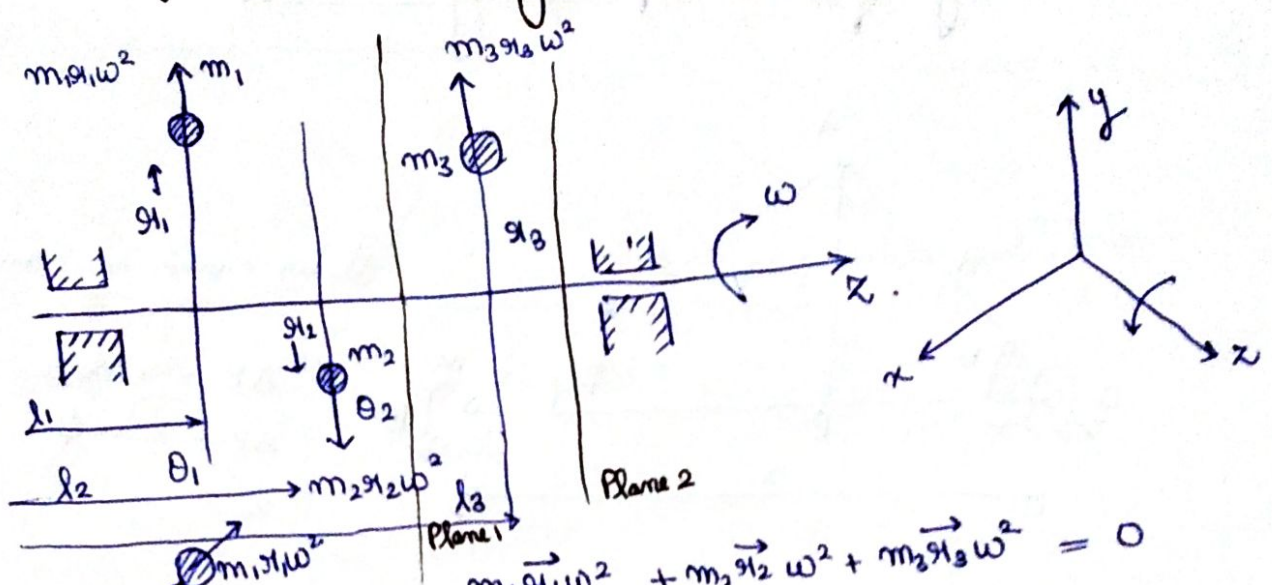 m₁r₁ω²
m₁
m₃r₃ω²
y
m₃
r₁
r₃
ω
z.
r₂
m₂
x
z
θ₂
l₁
θ₁
l₂
m₂r₂ω²
l₃
Plane 2
Plane 1
m₁r₁ω²
m₁r₁⃗ω² + m₂r₂⃗ω² + m₃r₃⃗ω² = 0